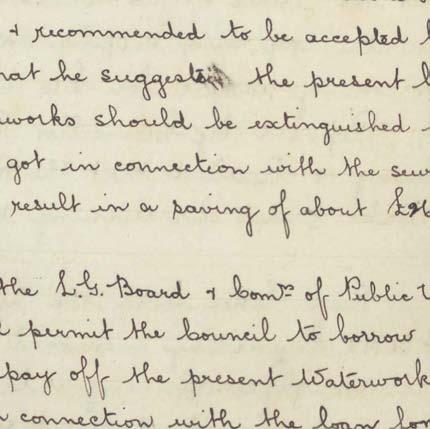 & recommended to be accepted
hat he suggests the present
works should be extinguished
got in connection with the sew
result in a saving of about £
the L.G. Board & Comrs of Public
permit the Council to borrow
pay off the present Waterwork
connection with the loan